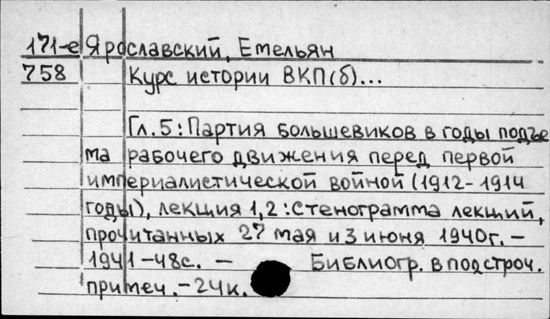 171-е Ярославский, Емельян
758 Курс истории ВКП(б)...
Гл.5: Партия большевиков в годы подъе
ма рабочего движения перед первой
империалистической войной (1912-1914
годы), лекция 1,2: Стенограмма лекций,
прочитанных 27 мая и 3 июня 1940г. –
1941 – 48с. – Библиогр. в подстроч.
примеч. – 24к.